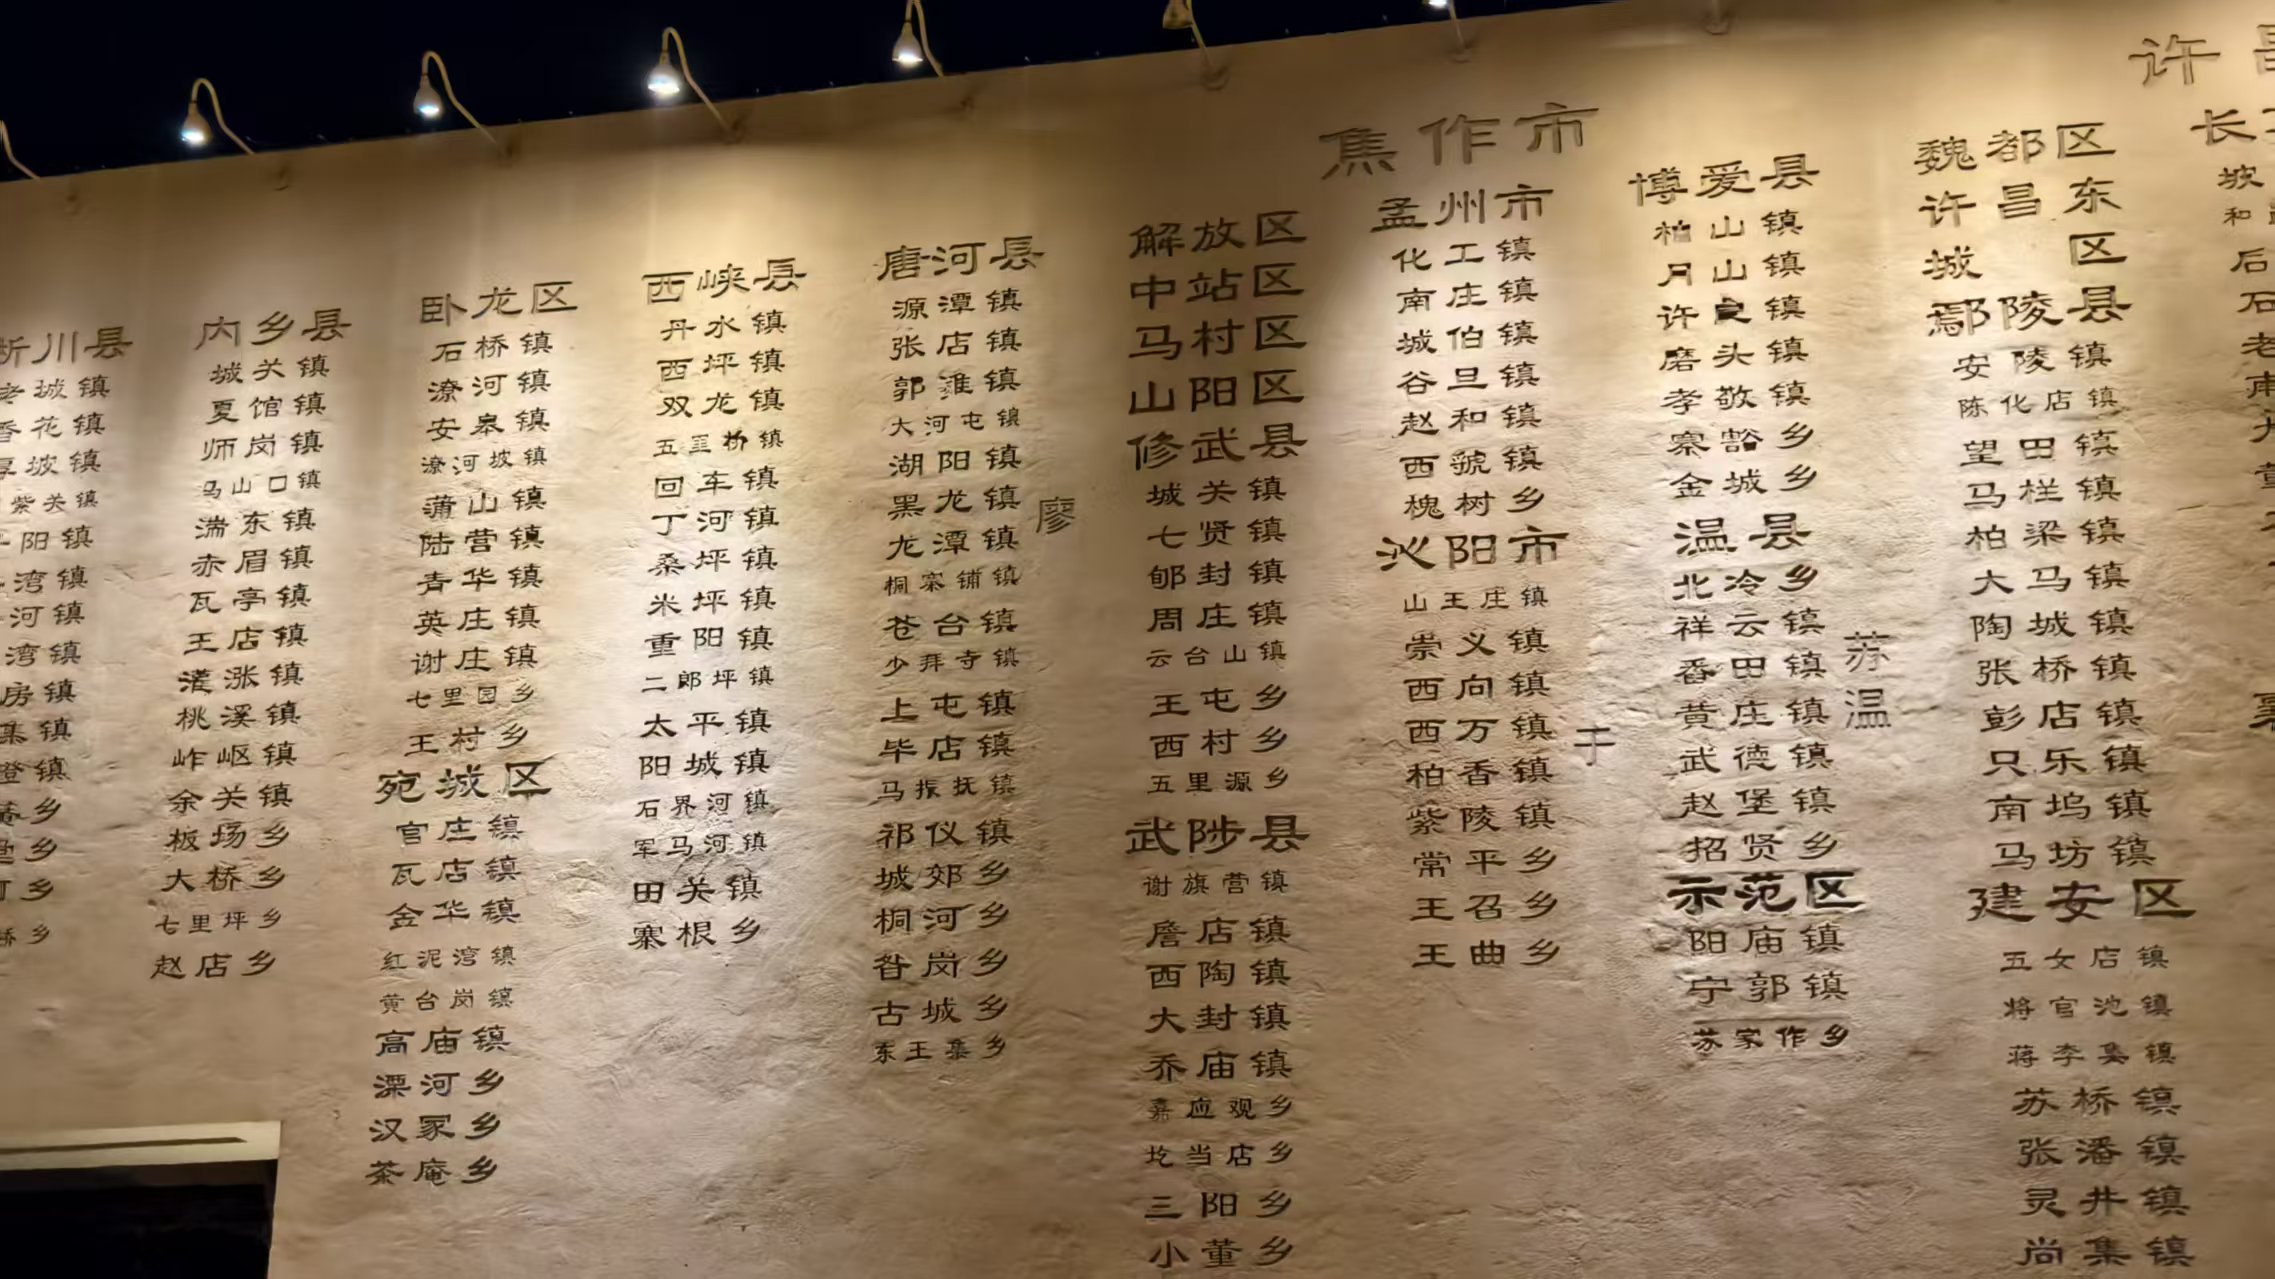 川县
老城镇
香花镇
厚坡镇
紫关镇
阳镇
湾镇
河镇
湾镇
房镇
集镇
镇
乡
乡
乡
桥乡
内乡县
城关镇
夏馆镇
师岗镇
马山口镇
湍东镇
赤眉镇
瓦亭镇
王店镇
灌涨镇
桃溪镇
岞岖镇
余关镇
板场乡
大桥乡
七里坪乡
赵店乡
卧龙区
石桥镇
潦河镇
安皋镇
潦河坡镇
蒲山镇
陆营镇
青华镇
英庄镇
谢庄镇
七里园乡
王村乡
宛城区
官庄镇
瓦店镇
金华镇
红泥湾镇
黄台岗镇
高庙镇
溧河乡
汉冢乡
茶庵乡
西峡县
丹水镇
西坪镇
双龙镇
五里桥镇
回车镇
丁河镇
桑坪镇
米坪镇
重阳镇
二郎坪镇
太平镇
阳城镇
石界河镇
军马河镇
田关镇
寨根乡
唐河县
源潭镇
张店镇
郭滩镇
大河屯镇
湖阳镇
黑龙镇
龙潭镇
桐寨铺镇
苍台镇
少拜寺镇
上屯镇
毕店镇
马振抚镇
祁仪镇
城郊乡
桐河乡
昝岗乡
古城乡
东王集乡
廖
焦作市
解放区
中站区
马村区
山阳区
修武县
城关镇
七贤镇
郇封镇
周庄镇
云台山镇
王屯乡
西村乡
五里源乡
武陟县
谢旗营镇
詹店镇
西陶镇
大封镇
乔庙镇
嘉应观乡
圪当店乡
三阳乡
小董乡
孟州市
化工镇
南庄镇
城伯镇
谷旦镇
赵和镇
西虢镇
槐树乡
沁阳市
山王庄镇
崇义镇
西向镇
西万镇
柏香镇
紫陵镇
常平乡
王召乡
王曲乡
于
博爱县
柏山镇
月山镇
许良镇
磨头镇
孝敬镇
寨豁乡
金城乡
温县
北冷乡
祥云镇
番田镇
黄庄镇
武德镇
赵堡镇
招贤乡
示范区
阳庙镇
宁郭镇
苏家作乡
苏
温
许昌
魏都区
许昌东
城区
鄢陵县
安陵镇
陈化店镇
望田镇
马栏镇
柏梁镇
大马镇
陶城镇
张桥镇
彭店镇
只乐镇
南坞镇
马坊镇
建安区
五女店镇
将官池镇
蒋李集镇
苏桥镇
张潘镇
灵井镇
尚集镇
长
坡
和
后
石
老
南
董
襄